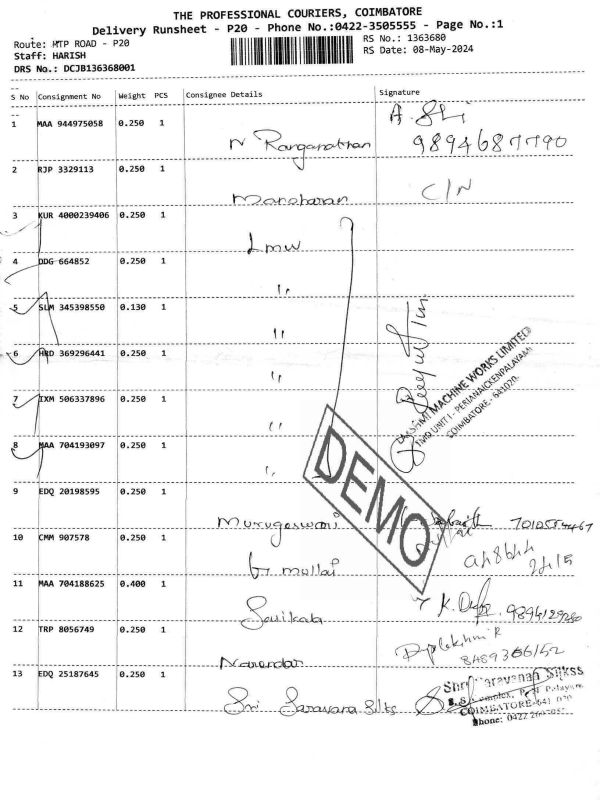 THE PROFESSIONAL COURIERS, COIMBATORE
Delivery Runsheet - P20 - Phone No.:0422-3505555 - Page No.:1
Route: MTP ROAD - P20 RS No.: 1363680
Staff: HARISH RS Date: 08-May-2024
DRS No.: DCJB136368001
S No Consignment No Weight PCS Consignee Details Signature
1 MAA 944975058 0.250 1
N Ranganathan 9894687790
2 RJP 3329113 0.250 1
Manoharan C/N
3 KUR 4000239406 0.250 1
Lmw
4 DDG 664852 0.250 1
''
5 SLM 345398550 0.130 1
''
6 HRD 369296441 0.250 1
''
7 IXM 506337896 0.250 1
''
8 MAA 704193097 0.250 1
''
LAKSHMI MACHINE WORKS LIMITED
UNIT I - PERIANAICKENPALAYAM
COIMBATORE - 641020.
DEMO
9 EDQ 20198595 0.250 1
Murugeswari
10 CMM 907578 0.250 1
G. mullai
11 MAA 704188625 0.400 1
12 TRP 8056749 0.250 1
Narendar
13 EDQ 25187645 0.250 1
Sri Saravana Silks
COIMBATORE-641 020
Phone: 0422